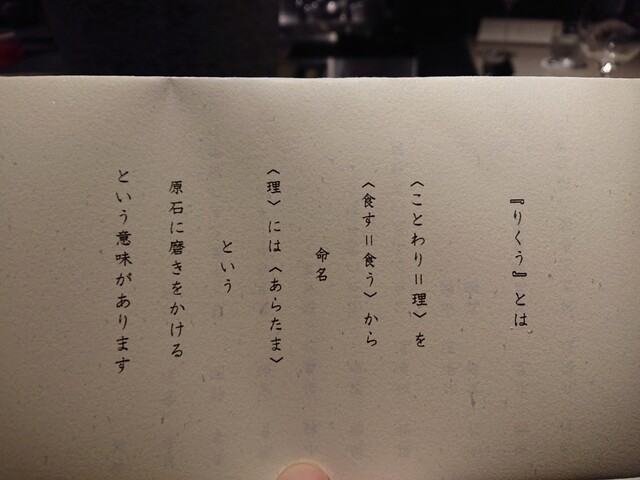 『りくう』とは
〈ことわり＝理〉を
〈食す＝食う〉から
命名
〈理〉には〈あらたま〉
という
原石に磨きをかける
という意味があります